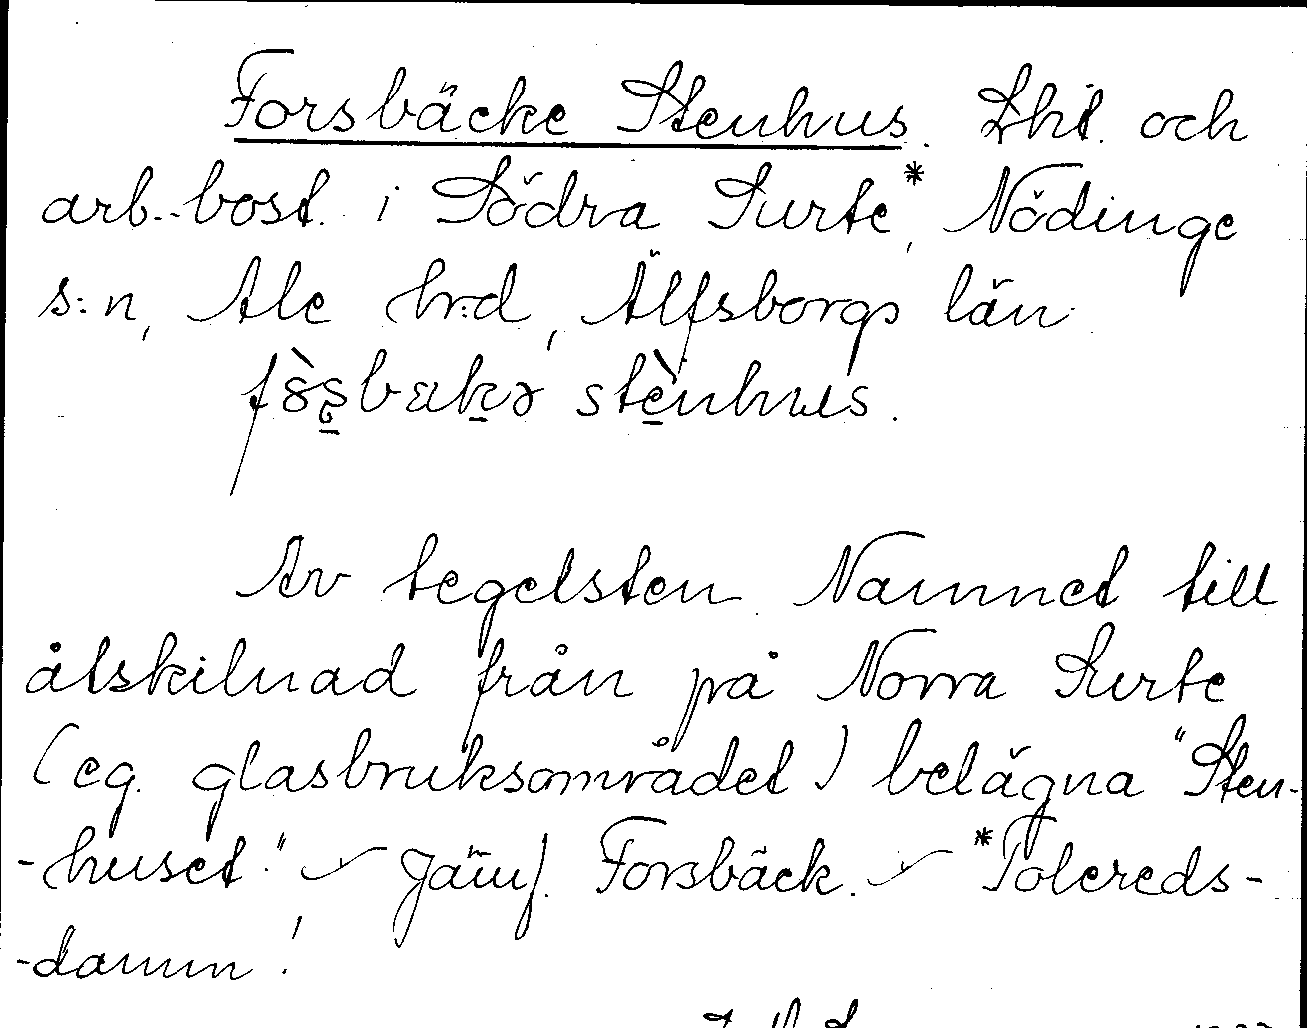 Forsbäcke Stenhus. Lht. och
arb.-bost. i Södra Surte*, Nödinge
s:n, Ale hrd, Älfsborgs län
stènhus.
Av tegelsten. Namnet till
åtskilnad från på Norra Surte
(eg. glasbruksområdet) belägna "Sten-
-huset." Jämf. Forsbäck. *Tolereds-
-damm!